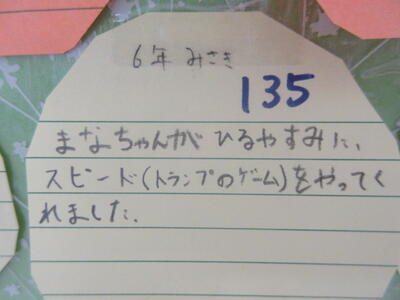 6年 みさき
135
まなちゃんが ひるやすみに、
スピード(トランプのゲーム)をやってく
れました.